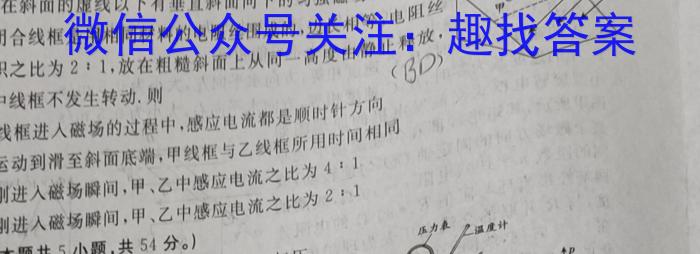 在斜面的虚线以下有垂直斜面向下的匀强磁
甲
闭合线框
电阻丝
积之比为2:1,放在粗糙斜面上从同一高度由静止释放,
微信公众号关注:趣找答案
(BD)
中线框不发生转动.则
线框进入磁场的过程中,感应电流都是顺时针方向
运动到滑至斜面底端,甲线框与乙线框所用时间相同
刚进入磁场瞬间,甲、乙中感应电流之比为4:1
刚进入磁场瞬间,甲、乙中感应电流之比为2:1
本题共5小题,共54分。)
压力表
温度计